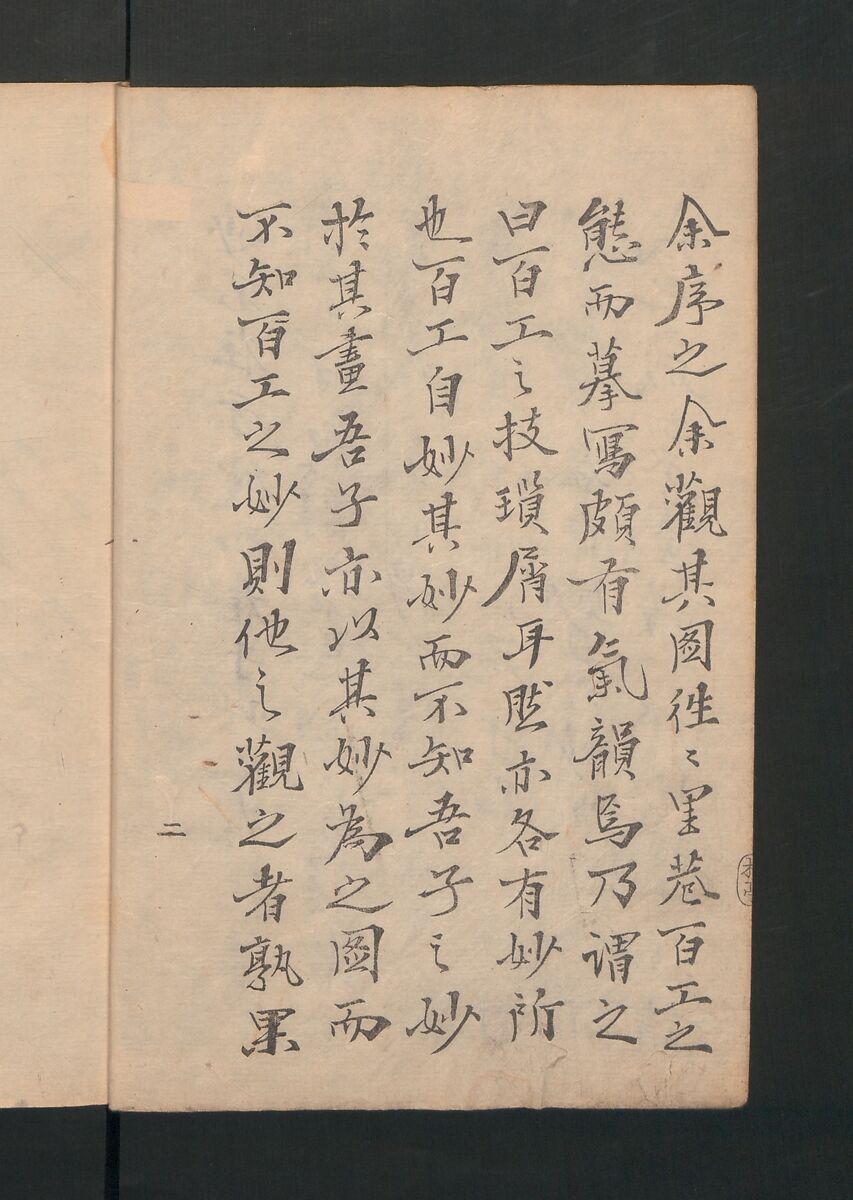 余序之余觀其圖徃〻里巷百工之
態而摹寫頗有氣韻焉乃謂之
曰百工之技瑣屑耳然亦各有妙所
也百工自妙其妙而不知吾子之妙
於其畫吾子亦以其妙為之圖而
不知百工之妙則他之觀之者孰果
二